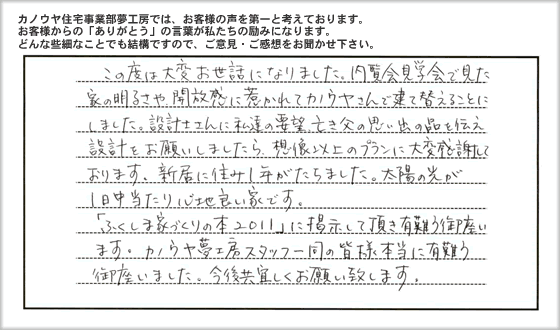 カノウヤ住宅事業部夢工房では、お客様の声を第一と考えております。
お客様からの「ありがとう」の言葉が私たちの励みになります。
どんな些細なことでも結構ですので、ご意見・ご感想をお聞かせ下さい。
この度は大変お世話になりました。内覧会見学会で見た
家の明るさや、開放感に惹かれてカノウヤさんで建て替えることに
しました。設計士さんに私達の要望、亡き父の思い出の品を伝え
設計をお願いしましたら、想像以上のプランに大変感謝して
おります。新居に住み1年がたちました。太陽の光が
1日中当たり心地良い家です。
「ふくしま家づくりの本2011」に掲示して頂き有難う御座い
ます。カノウヤ夢工房スタッフ一同の皆様本当に有難う
御座いました。今後共宜しくお願い致します。